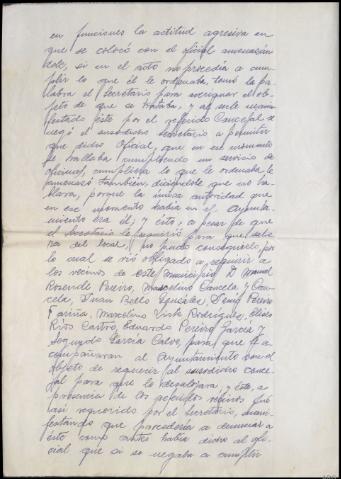 en funciones la actitud agresiva en
que se colocó con el oficial amenazán
dole, si en el acto no procedia a cum-
plir lo que él le ordenaba, tomó la pa-
labra el Secretario para averiguar el ob-
jeto de que se trataba, y al serle mani-
festado ésto por el referido Concejal se
negó el susodicho Secretario a permitir
que dicho Oficial, que en ese momento
se hallaba cumpliendo un servicio de
oficina, cumpliera lo que le ordenaba, le
amenazó también, diciéndole que se ca-
llara, porque la única autoridad que
en ese momento habia en el Ayunta-
miento era él; y ésto, a pesar de que
el Secretario le requirió para que salie-
ra del local, no pudo conseguirlo, por
lo cual se vió obligado a requerir a
los vecinos de este Municipio D. Manuel
Rosende Pereiro, Marcelino Cancela y Can-
cela, Juan Bello González, Pereira
Fariña, Marcelino Rodriguez, Eliseo
Rios Castro, Eduardo Pereira Garcia y
Segundo Garcia Calvo, para que le a-
compañaran al Ayuntamiento con el
objeto de requerir al susodicho conce-
jal para que lo desalojara, y ésto, a
presencia de los repetidos vecinos fué
asi requerido por el Secretario, mani-
festando que procederia a denunciar a
ésto como antes habia dicho al ofi-
cial que si se negaba a cumplir